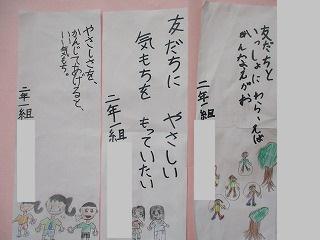 やさしさを、
かんじてあげると、
いい気もち。
二年一組
友だちに やさしい
気もちを もっていたい
二年一組
友だちと
いっしょに わらえば
みんなえがお
二年一組